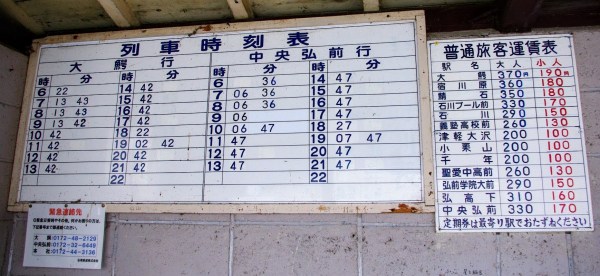 列車時刻表
大鰐行
中央弘前行
時 分 時 分 時 分 時 分
6 22 14 42 6 36 14 47
7 13 43 15 42 7 06 36 15 47
8 13 43 16 42 8 06 36 16 47
9 13 42 17 42 9 06 17 47
10 42 18 22 10 06 47 18 27
11 42 19 02 42 11 47 19 07 47
12 42 20 42 12 47 20 47
13 42 21 42 13 47 21 47
22 22
普通旅客運賃表
駅名 大人 小人
大鰐 370円 190円
宿川原 360 180
鯖石 350 180
石川プール前 330 170
石川 290 150
義塾高校前 260 130
津軽大沢 200 100
小栗山 200 100
千年 200 100
聖愛中高前 260 130
弘前学院大前 290 150
弘高下 310 160
中央弘前 330 170
定期券は最寄り駅でおたずねください
緊急連絡先
大鰐:0172-48-2129
中央弘前:0172-32-6449
本社:0172-44-3136